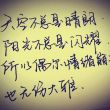 天空不总是晴朗
阳光不总是闪耀
所以偶尔情绪崩
也无伤大雅.